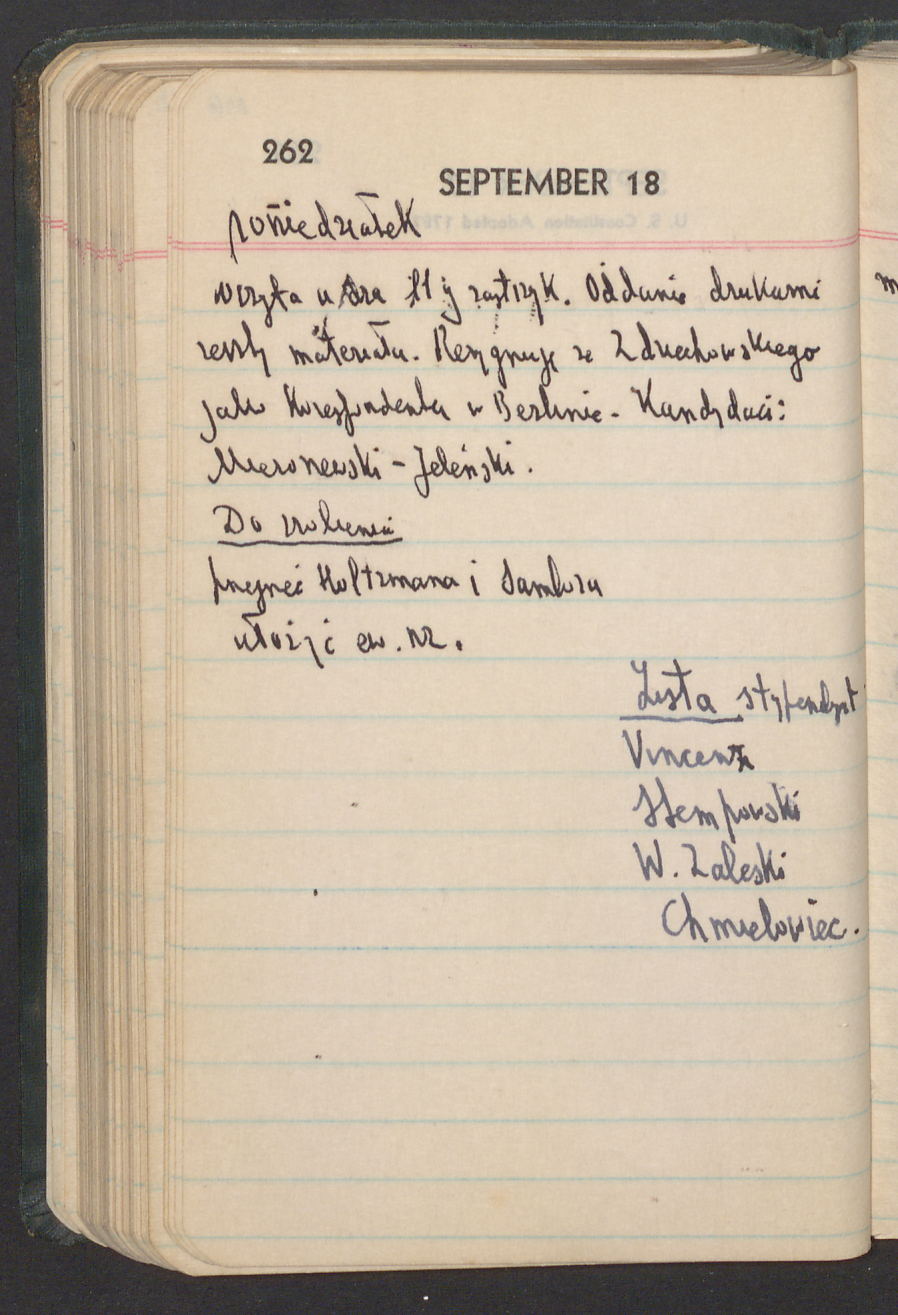 262
SEPTEMBER 18
poniedziałek
wizyta u dra 11 y zastrzyk. Oddanie drukarni
reszty materiału. Rezygnuję ze Zdziechowskiego
jako Korespondenta w Berlinie - Kandydaci:
Mieroszewski - Jeleński.
Do zrobienia
przejrzeć Holtzmana i Sambora
ułożyć ew. nr.
Lista stypendyst
Vincenz
Stempowski
W. Zaleski
Chmielowiec.